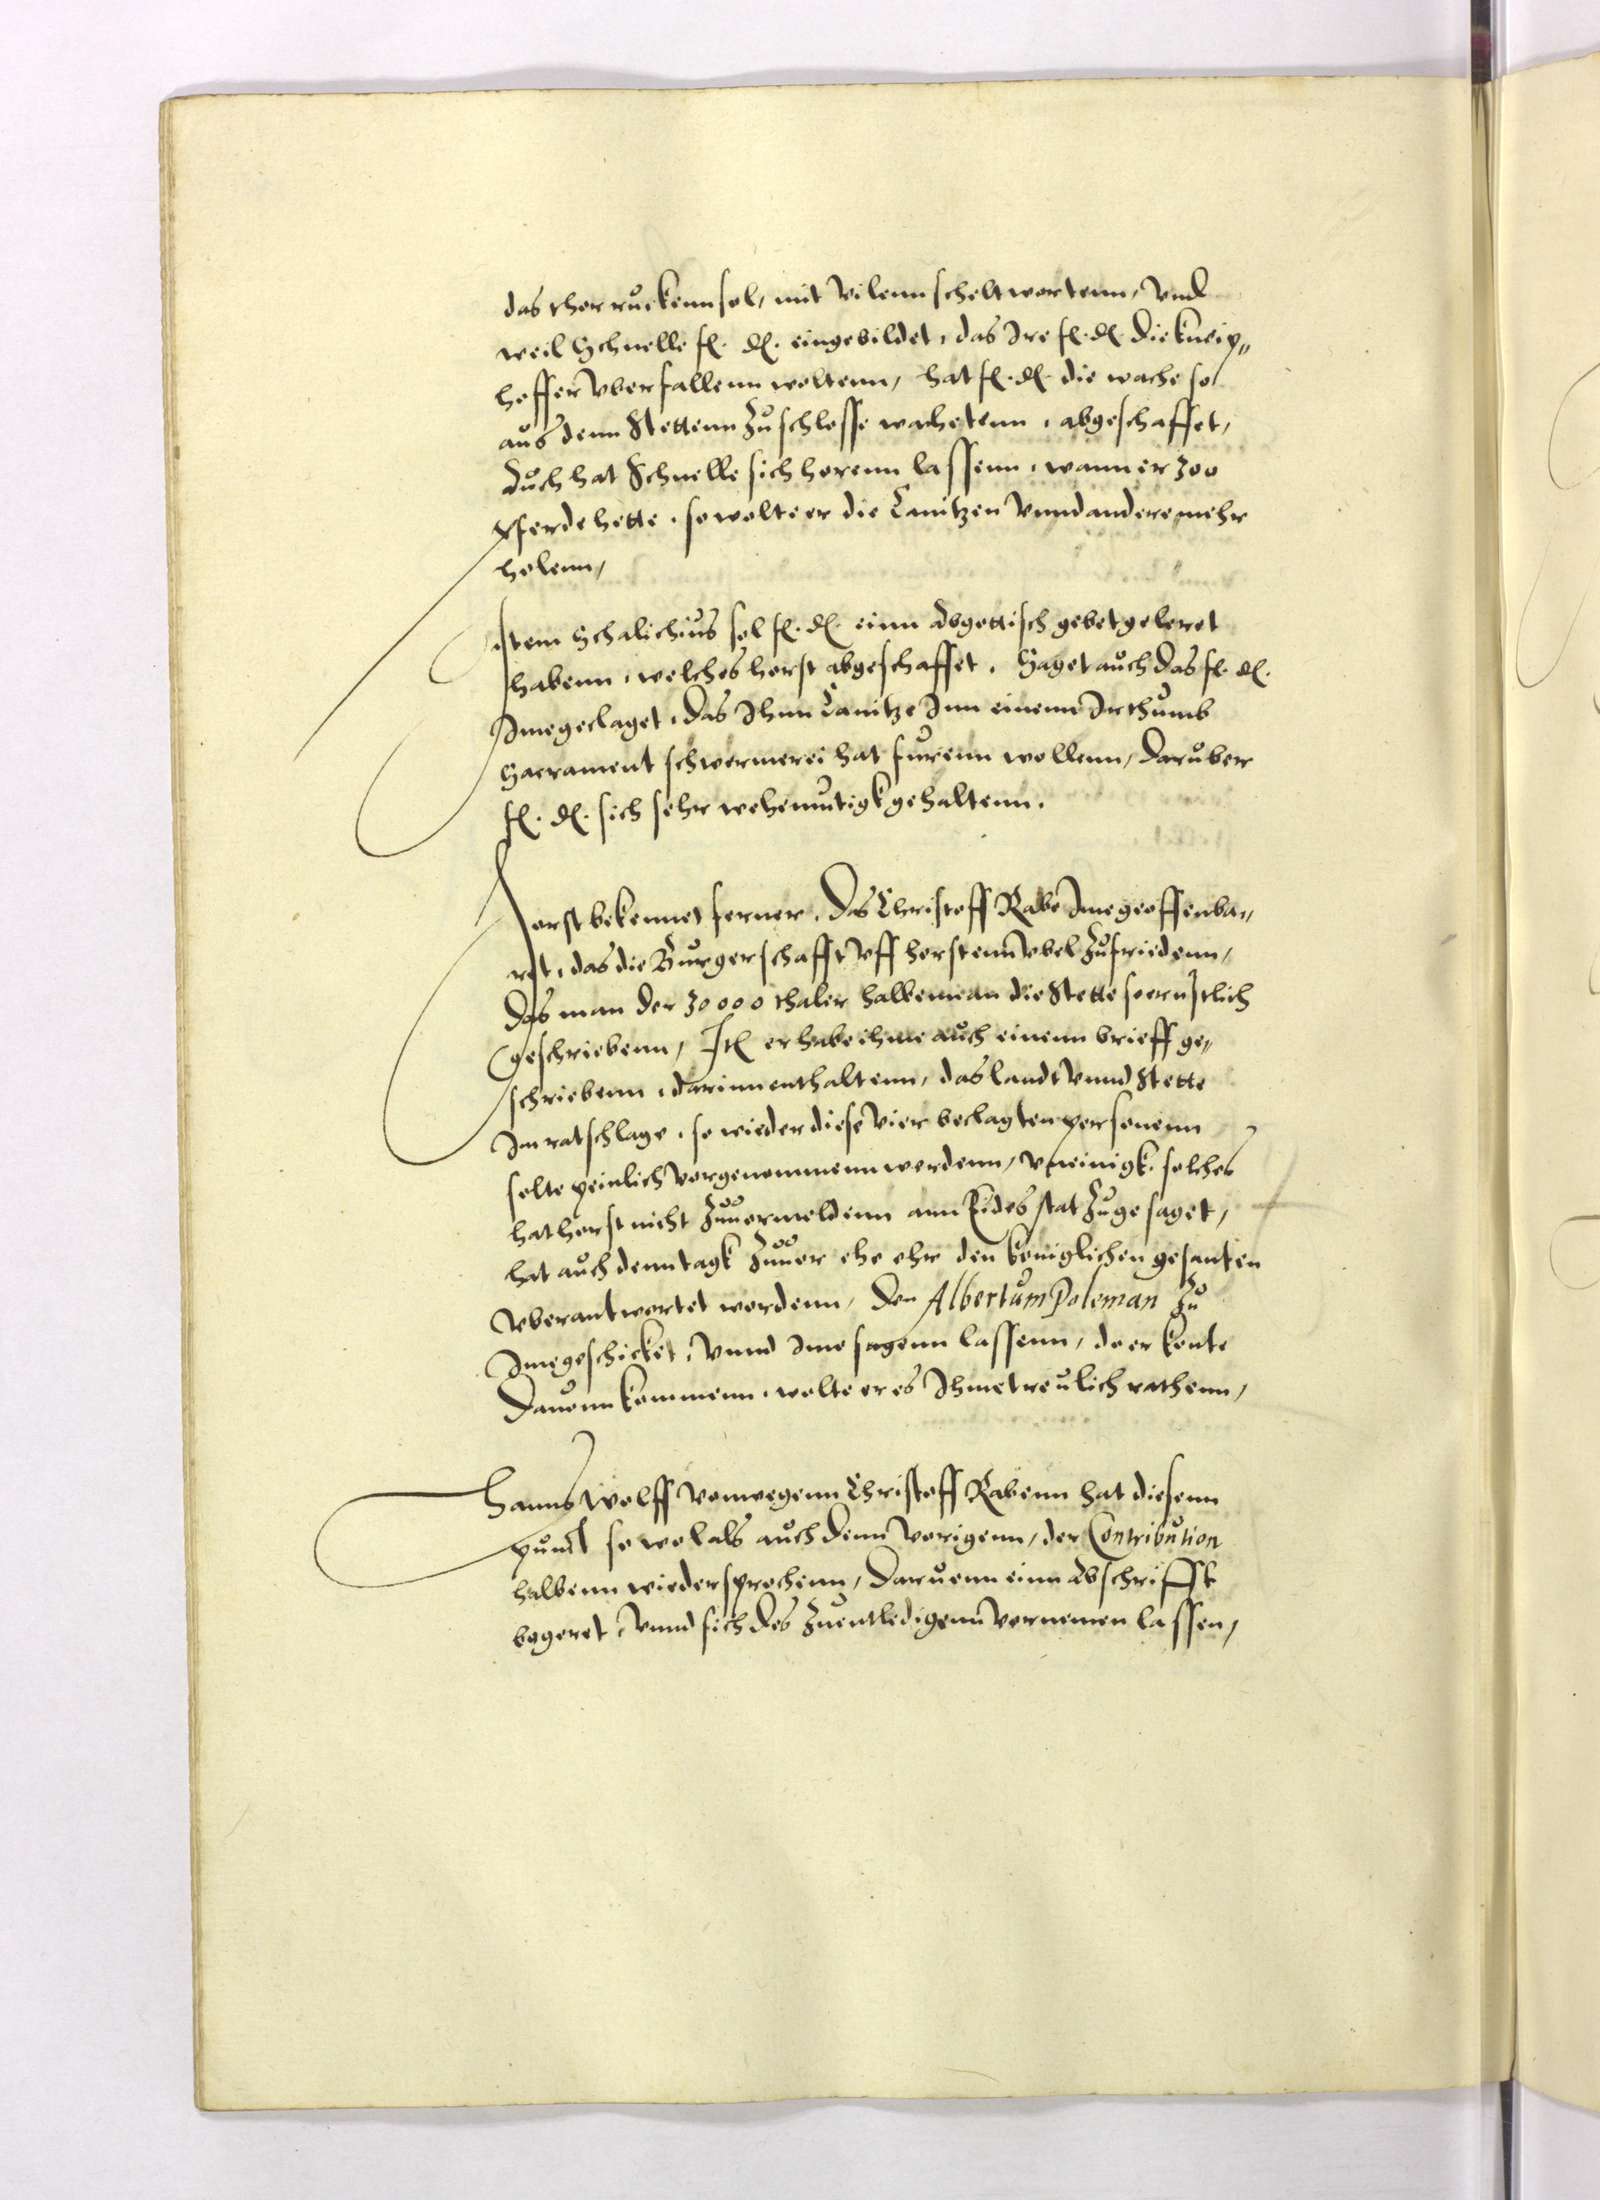 das thor ruckenn sol, mit vilenn scheltwortenn, vnd
weil Schnelle f. d. eingebildet, das Ire f. d. die kneip„
hoffer vberfallenn woltenn, hat f. d. die wache so
aus denn Stettenn zu schlosse wachetenn, abgeschaffet,
Auch hat Schnelle sich horenn lassenn, wann er 300
pferde hette, so wolte er die Canitzen vnnd andere mehr
holenn,
Item Schalichius sol f. d. einn Abgottisch gebet geleret
habenn, welches horst abgeschaffet, Saget auch das f. d.
Ime geclaget, das Ihnn Canitze Inn einenn Irthumb
Sacrament schwermerei hat furenn wollenn, daruber
f. d. sich sehr wehemutigk gehaltenn.
Horst bekennet ferner, das Christoff Rabe Ime geoffenba„
ret, das die Burgerschafft vff horstenn vbel zufriedenn,
das man der 30000 thaler halbenn an die Stette so ernstlich
geschriebenn, It. er habe ihme auch einenn brieff ge„
schriebenn, darinn enthaltenn, das landt vnnd Stette
Im ratschlage, so wieder diese vier beclagten personenn
solte peinlich vorgenommenn werdenn, vneinigk, solches
hat horst nicht zuuormeldenn ann Eides stat zugesaget,
hat auch denn tagk zuuor ehe ehr den koniglichen gesanten
vberantwortet wordenn, den Albertum Poleman zu
Ime geschicket, vnnd Ime sagenn lassenn, do er konte
dauonn kommenn, wolte er es Ihme treulich rathenn,
Hanns Wolff vonwegenn Christoff Rabenn hat diesenn
punct so wol als auch denn vorigenn, der Contribution
halbenn wiedersprochenn, daruonn einn Abschrifft
begeret, vnnd sich des zuentledigenn vornemen lassen,